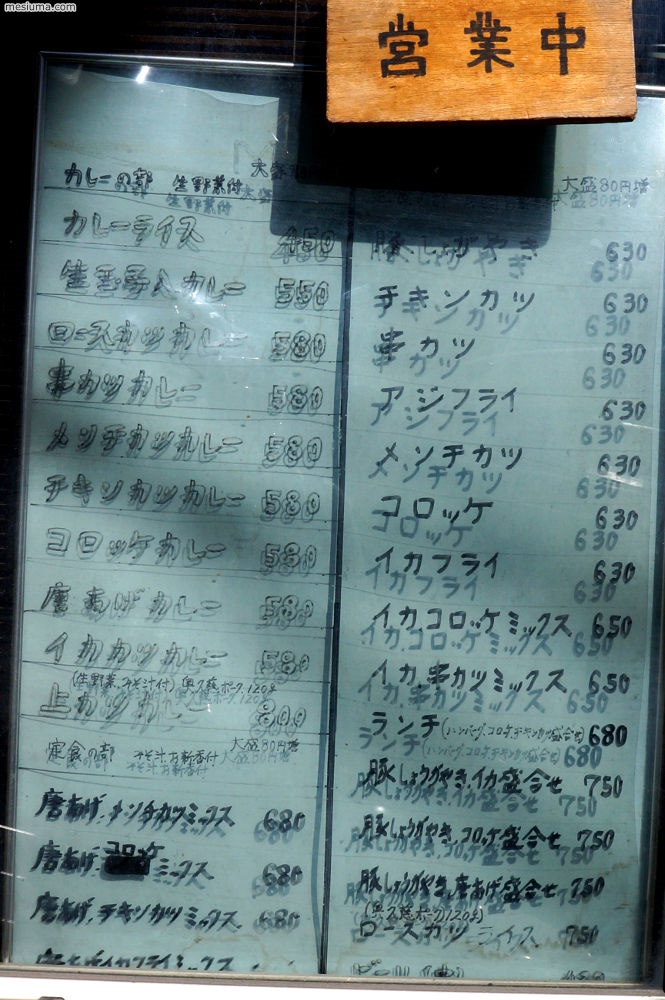 mesiuma.com
営業中
カレーの部 生野菜付 大盛
カレーライス 450
生玉子入カレー 550
ロースカツカレー 580
串カツカレー 580
メンチカツカレー 580
チキンカツカレー 580
コロッケカレー 580
唐あげカレー 580
イカカツカレー 580
(生野菜、みそ汁付) 奥久慈ポーク120g
上カツカレー 800
定食の部 みそ汁お新香付 大盛80円増
唐あげ、メンチカツミックス 680
唐あげ、コロッケミックス 680
唐あげ、チキンカツミックス 680
唐あげイカフライミックス
大盛80円増
豚、しょうがやき 630
チキンカツ 630
串カツ 630
アジフライ 630
メンチカツ 630
コロッケ 630
イカフライ 630
イカ、コロッケミックス 650
イカ、串カツミックス 650
ランチ(ハンバーグ、コロッケ、チキンカツ盛合せ) 680
豚しょうがやき、イカ盛合せ 750
豚しょうがやき、コロッケ盛合せ 750
豚しょうがやき、唐あげ盛合せ 750
(奥久慈ポーク120g)
ロースカツライス 750
ビール